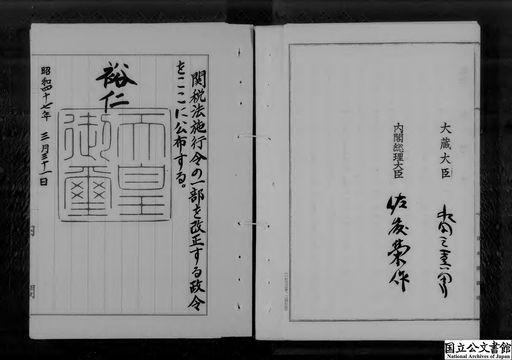 大蔵大臣 水田三喜男
内閣総理大臣 佐藤榮作
関税法施行令の一部を改正する政令
をここに公布する。
裕仁
天皇御璽
昭和四十七年 三月三十一日
国立公文書館
National Archives of Japan